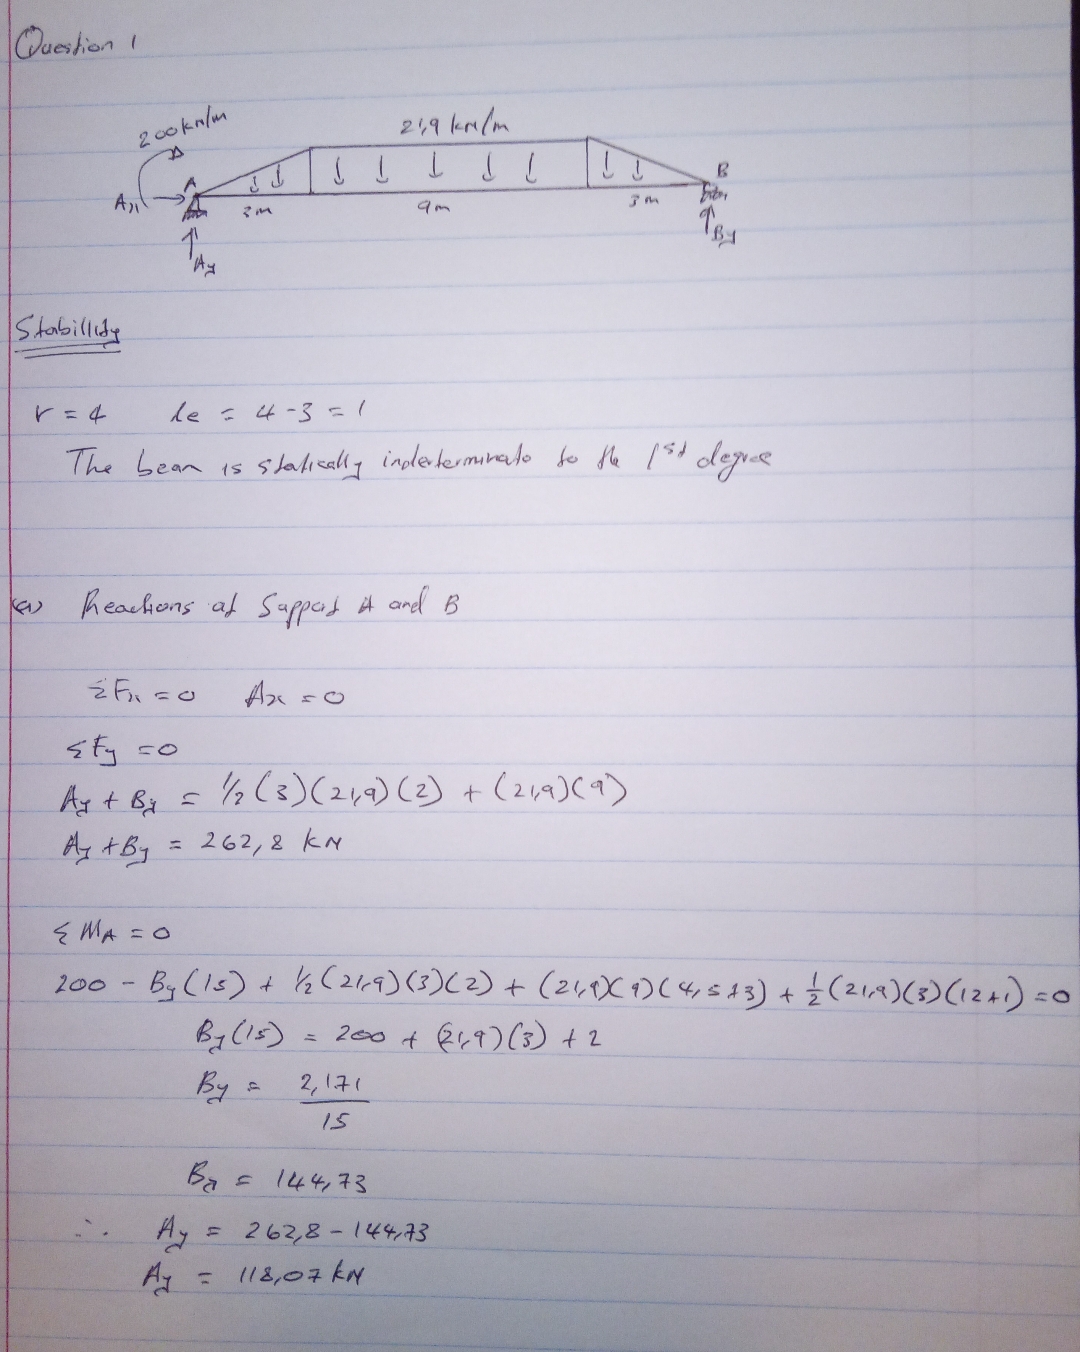 Question 1
200kn/m
21,9 kn/m
A
B
Ax
3m
9m
3m
Ay
By
Stabillity
r = 4 Ie = 4 - 3 = 1
The beam is statically indeterminate to the 1st degree
(a) Reactions at Support A and B
ΣFx = 0 Ax = 0
ΣFy = 0
Ay + By = 1/2 (3)(21,9)(2) + (21,9)(9)
Ay + By = 262,8 kN
ΣMA = 0
200 - By(15) + 1/2(21,9)(3)(2) + (21,9)(9)(4,5+3) + 1/2(21,9)(3)(12+1) = 0
By(15) = 200 + (21,9)(3) + 2
By = 2,171
15
By = 144,73
∴ Ay = 262,8 - 144,73
Ay = 118,07 kN